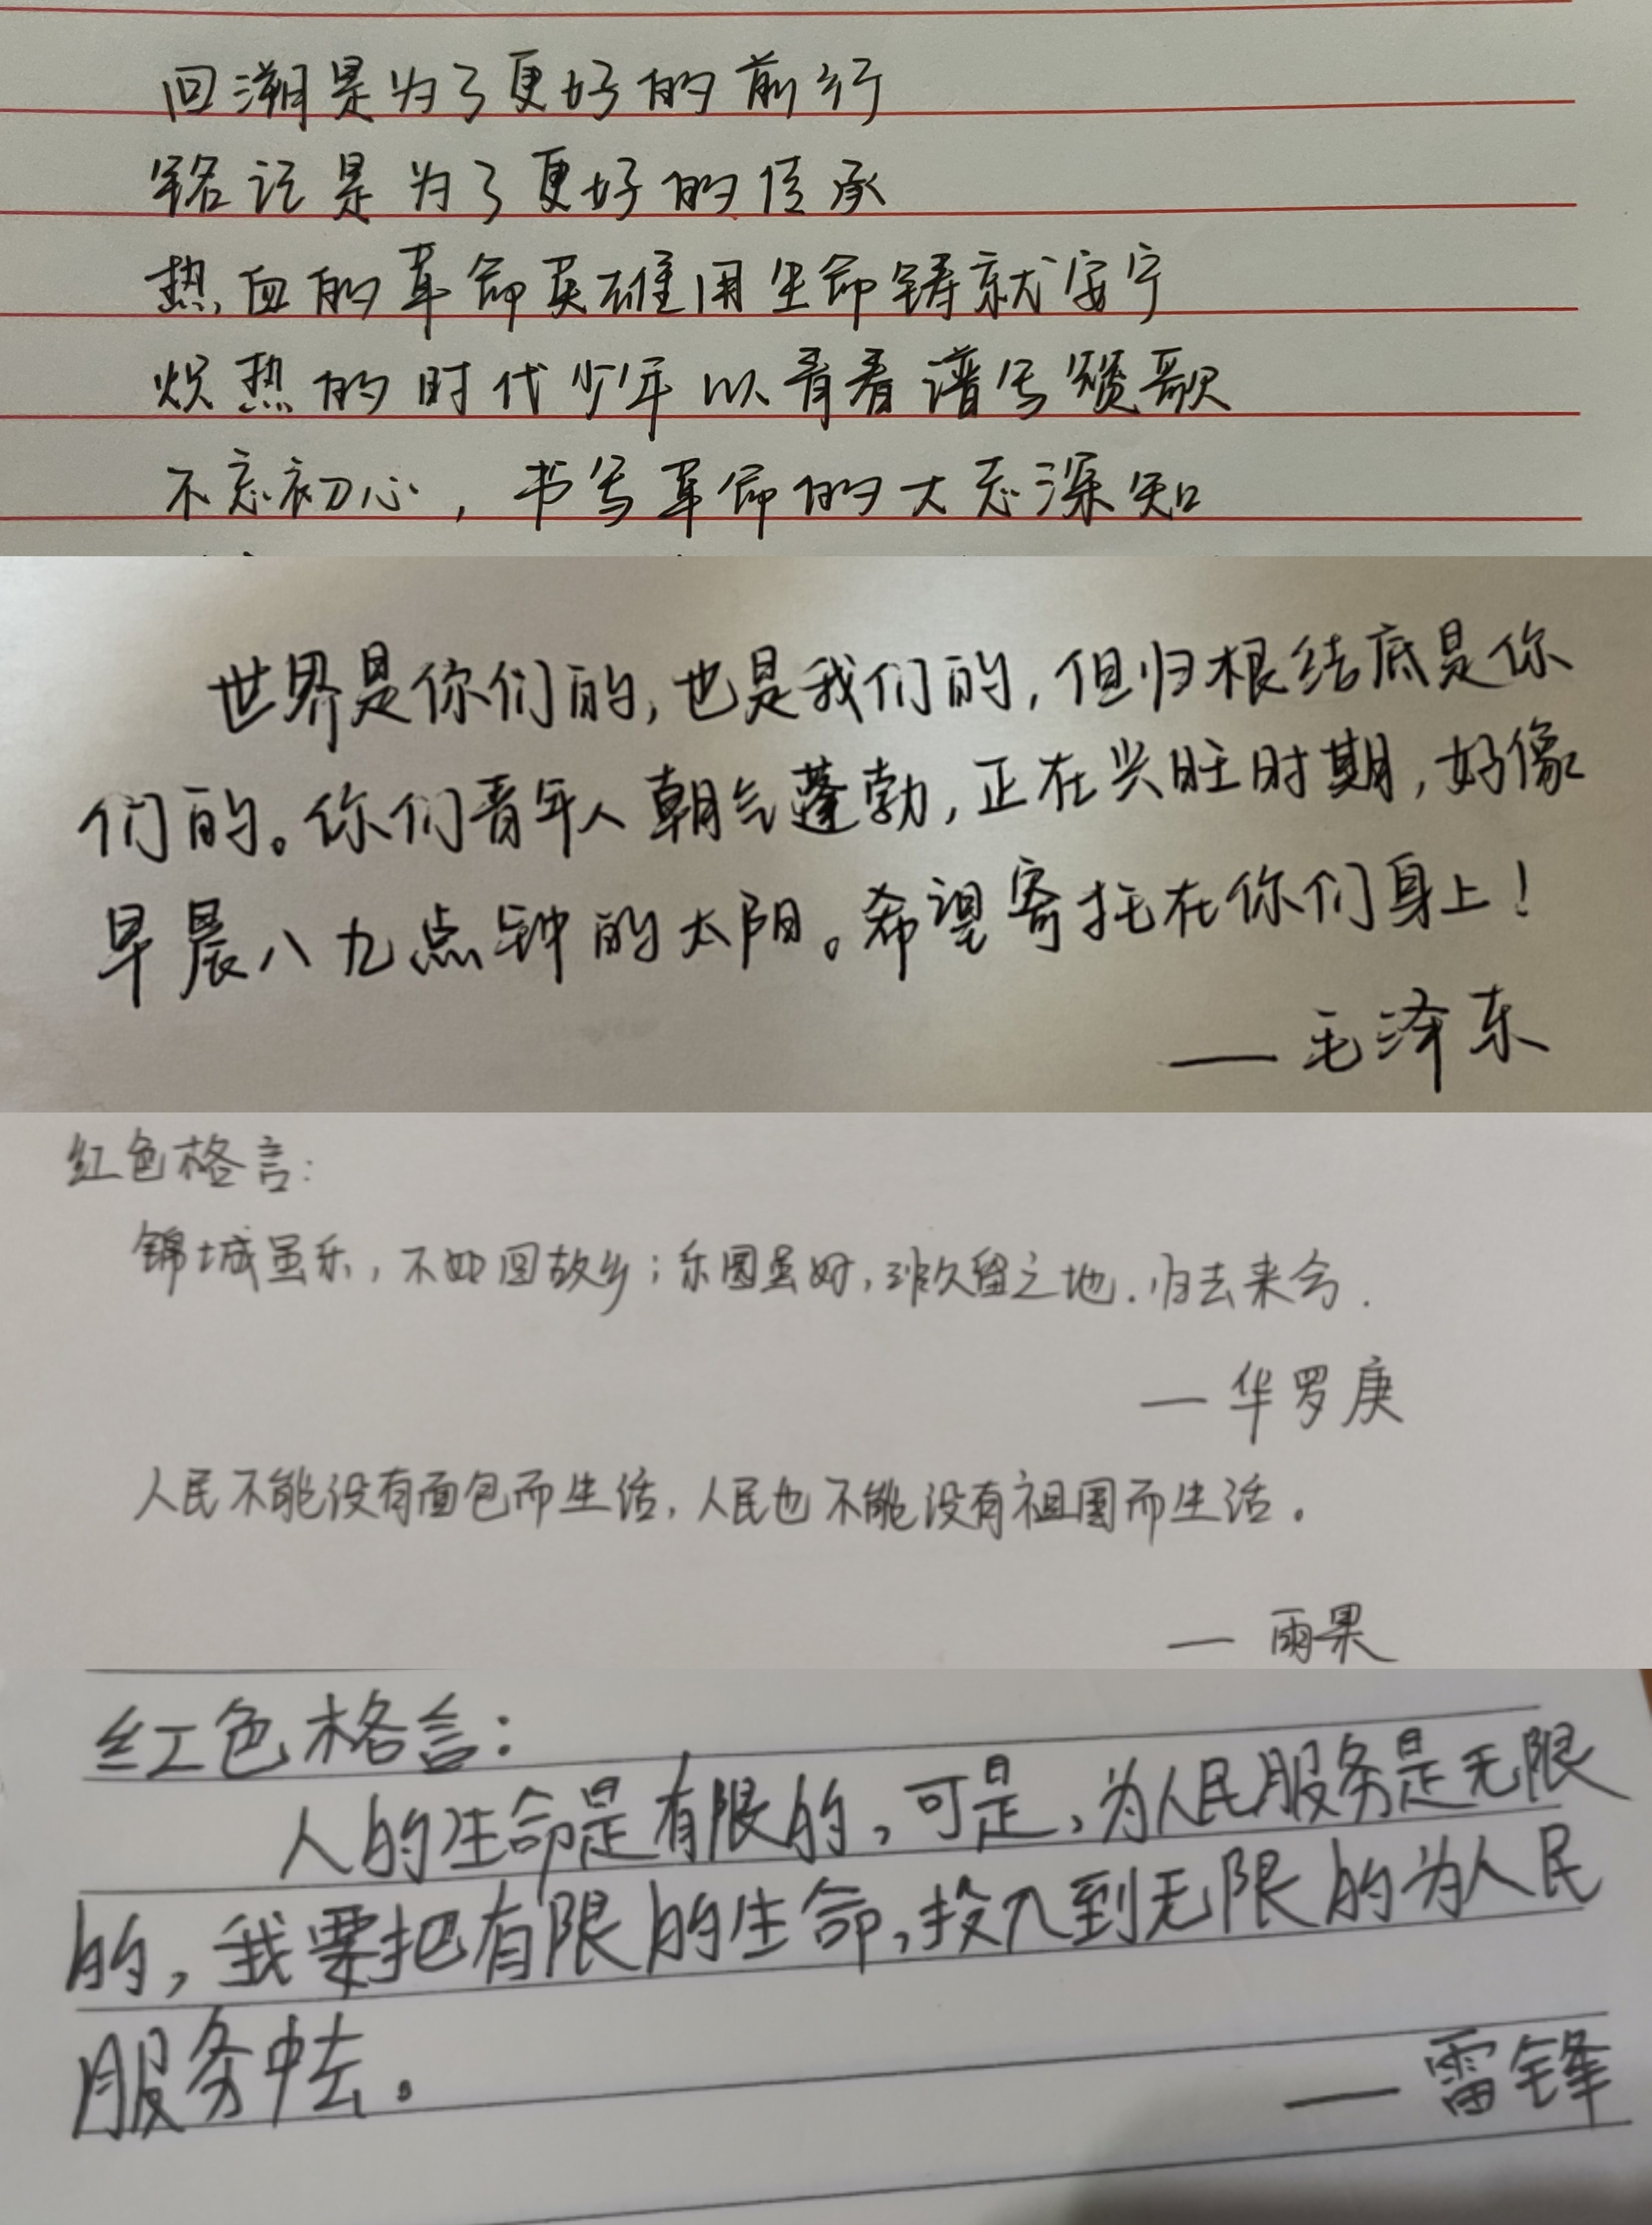 回溯是为了更好的前行
铭记是为了更好的传承
热血的革命英雄用生命铸就安宁
炽热的时代少年以青春谱写赞歌
不忘初心，书写革命的大志深知
世界是你们的,也是我们的,但归根结底是你
们的。你们青年人朝气蓬勃,正在兴旺时期,好像
早晨八九点钟的太阳。希望寄托在你们身上!
——毛泽东
红色格言:
锦城虽乐,不如回故乡;乐园虽好,非久留之地.归去来兮.
—华罗庚
人民不能没有面包而生活,人民也不能没有祖国而生活。
—雨果
红色格言:
人的生命是有限的,可是,为人民服务是无限
的,我要把有限的生命,投入到无限的为人民
服务中去。
——雷锋